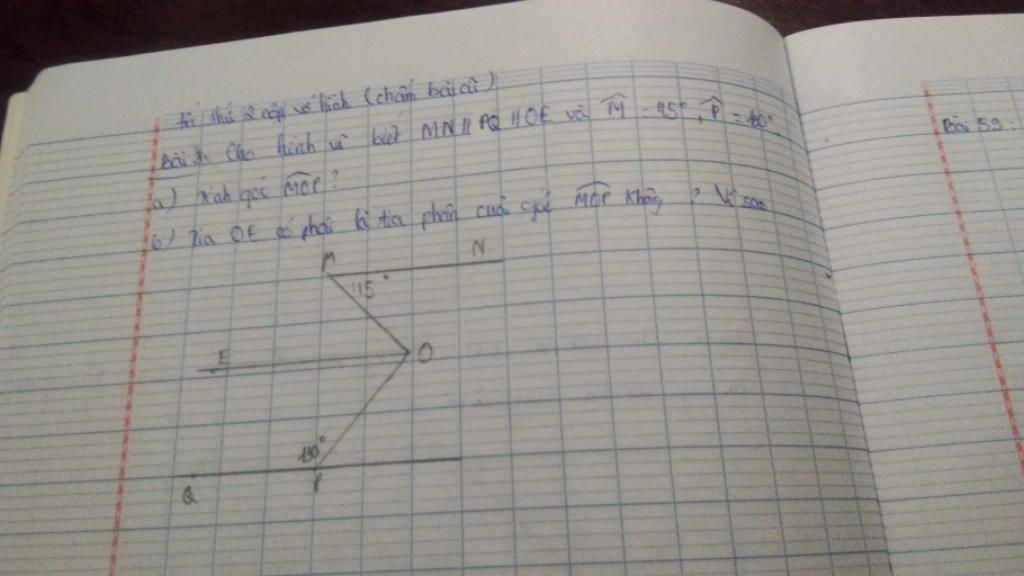 thứ 2 nộp vở hình (chấm bài cũ)
Bài 3. Cho hình vẽ biết MN // PQ // OE và M̂ = 45°, P̂ =
a) Tính góc MOP?
b) Tia OE có phải là tia phân của góc MOP không? Vì sao
M N
45°
E O
130°
Q P
Bài 59: